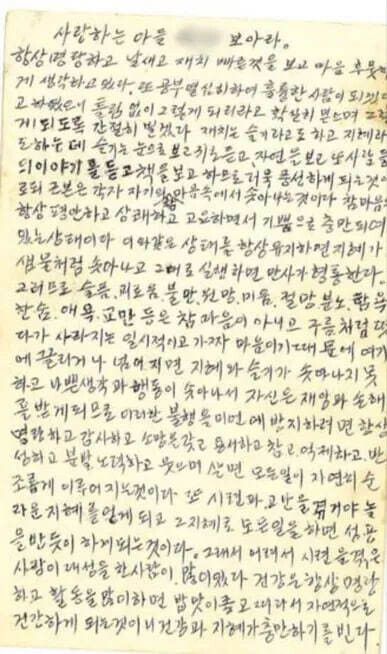 사랑하는 아들 보아라.
항상 명랑하고 날새고 재치 빠른것을 보고 마음 후뭇하
게 생각하고 있다. 또 공부 열심히하여 훌륭한 사람이 되겠다
고 하였으니 틀림 없이 그렇게 되리라고 확실히 믿으며 그렇
게 되도록 간절히 빌겠다 재치는 슬기라고도 하고 지혜라
도 하는데 슬기는 눈으로 보고 귀로 듣고 자연을 보고 남사람들
의 이야기를 듣고 책을 보고 하므로 더욱 풍성하게 되는것이
로되 근본은 각자 자기의 마음속에서 솟아나는것이다 참마음은
항상 평안하고 상쾌하고 고요하면서 기쁨으로 충만되여
있는 상태이다 이와같은 상태를 항상 유지하면 지혜가
샘물처럼 솟아나고 그대로 실행하면 만사가 형통한다.
그러므로 슬픔, 괴로움, 불만, 원망, 미움, 절망, 분노, 탐욕
한숨, 애욕, 교만 등은 참 마음이 아니고 구름처럼 떳
다가 사라지는 일시적이고 가짜 마음이기 때문에 여기
에 끌리거나 넘어지면 지혜와 슬기가 솟아나지 못
하고 나쁜생각과 행동이 솟아나서 자신은 재앙과 손해
를 받게 되므로 이러한 불행을 미연에 방지하려면 항상
명랑하고 감사하고 소망을 갖고 용서하고 참고, 억제하고, 반
성하고 분발 노력하고 웃으며 살면 모든일이 자연히 순
조롭게 이루어지는것이다 또 시련과 고난을 겪거야 놀
라운 지혜를 얻게 되고 그 지혜로 모든일을 하면 성공
을 밥듯이 하게 되는 것이다. 그래서 어려서 시련을 겪은
사람이 대성을 한사람이 많이 있다 건강은 항상 명랑
하고 활동을 많이하면 밥맛이 좋고 따라서 자연적으로
건강하게 되는것이니 건강과 지혜가 충만하기를 빈다.